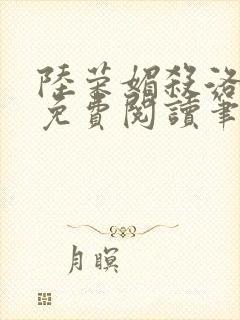 陸荣媚殺洛
免費閱讀筆
月暝